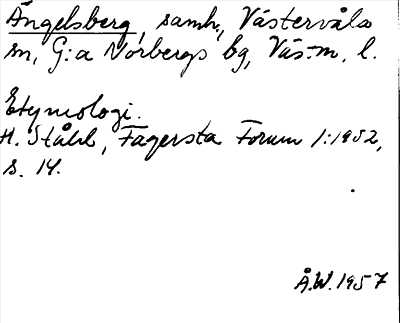 Ängelsberg, samh., Västervåla
sn, G:a Norbergs bg, Väs:m. l.
Etymologi.
H. Ståhl, Fagersta Forum 1:1952,
s. 14.
Å.W. 1957